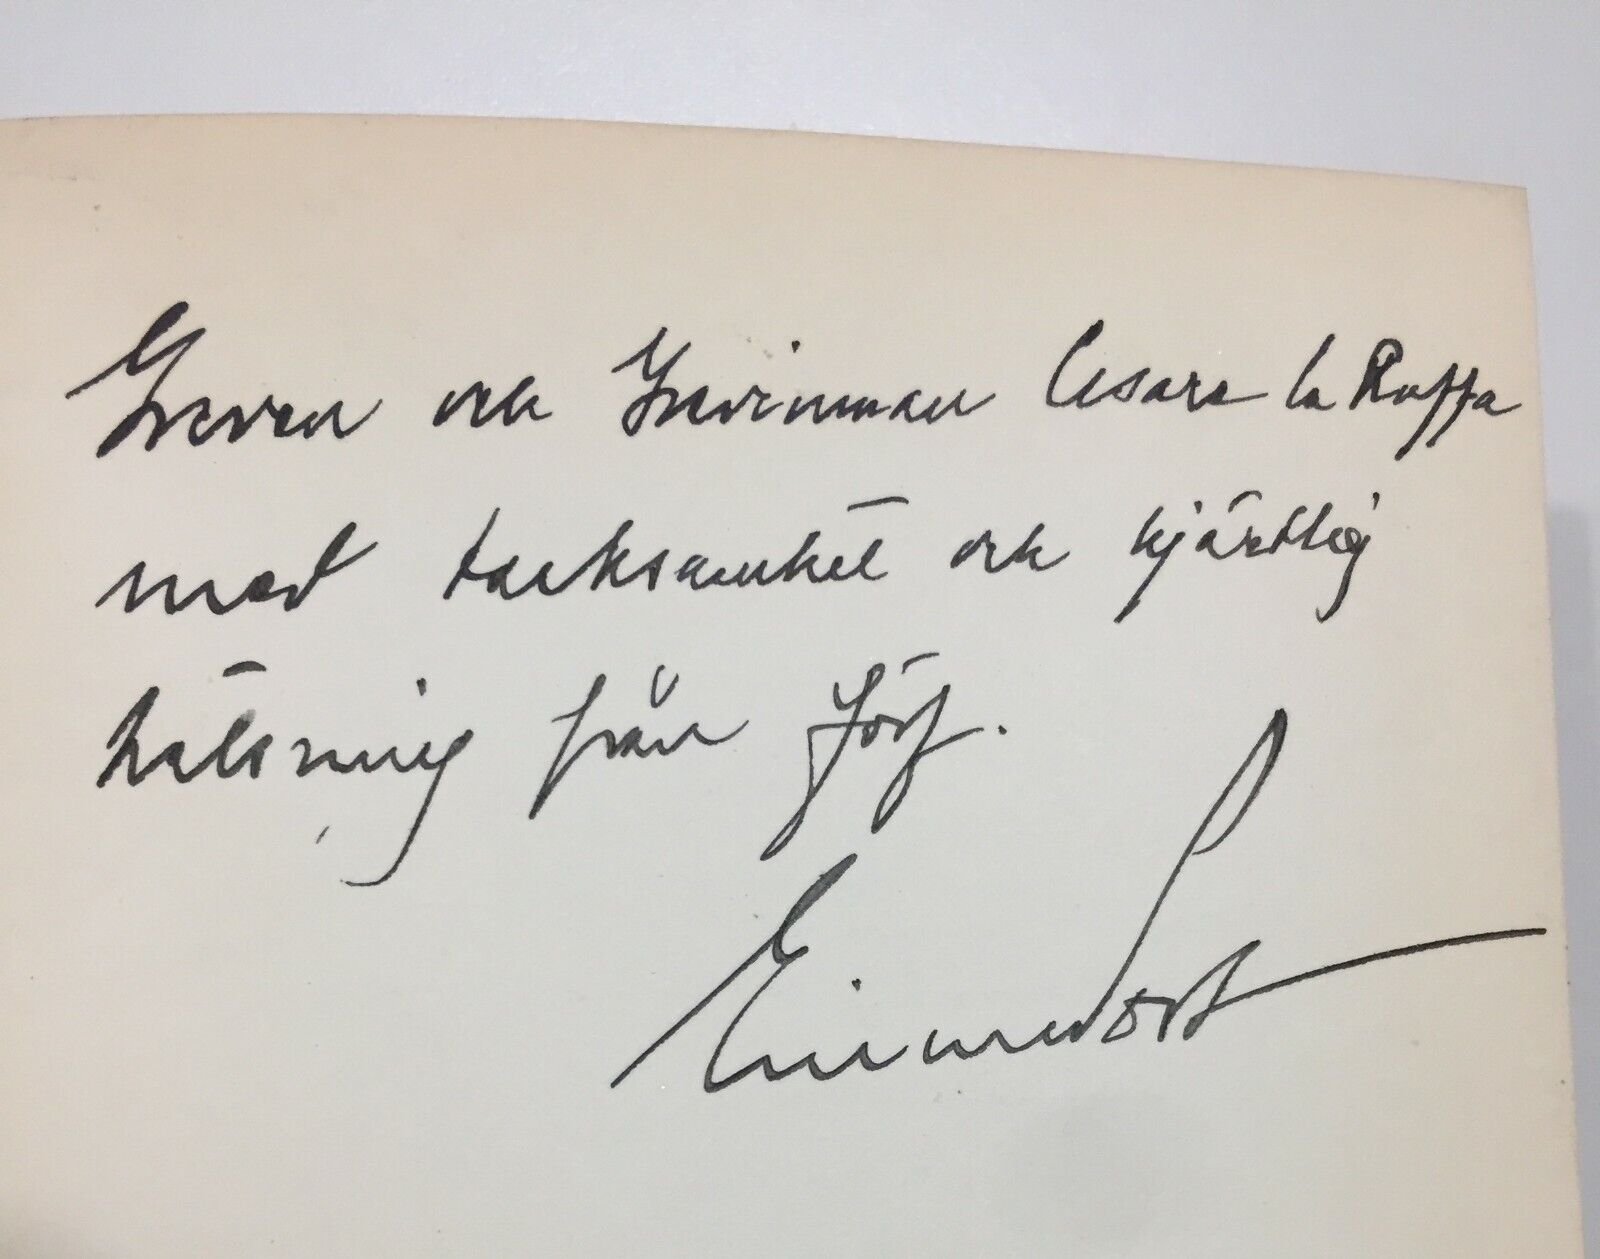 Greven och Grevinnan Cesare la Ruffa
med tacksamhet och hjärtlig
hälsning från förf.